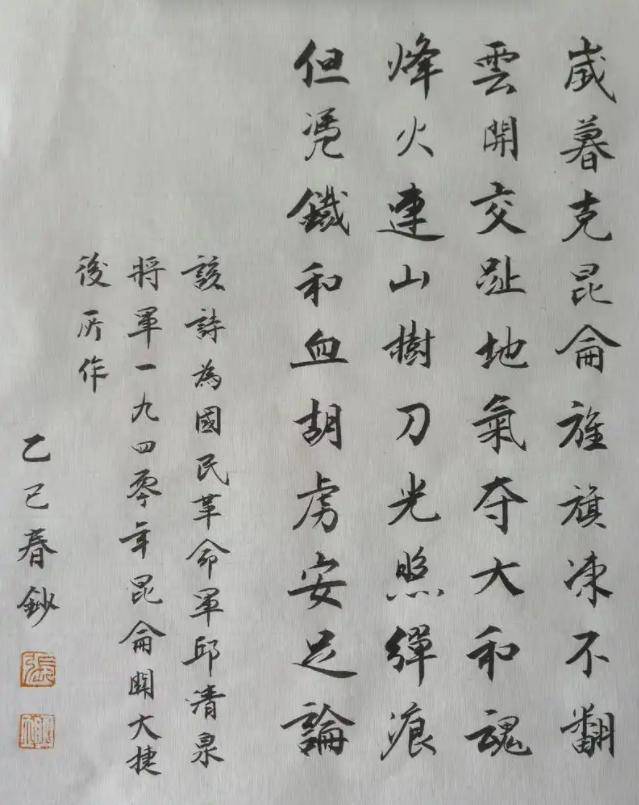 歲暮克昆侖旌旗凍不翻
雲開交趾地氣夺大和魂
烽火連山樹刀光照彈痕
但凭鐵和血胡虜安足論
該詩為國民革命軍邱清泉
將軍一九四零年昆侖関大捷
後所作
乙巳春鈔
張